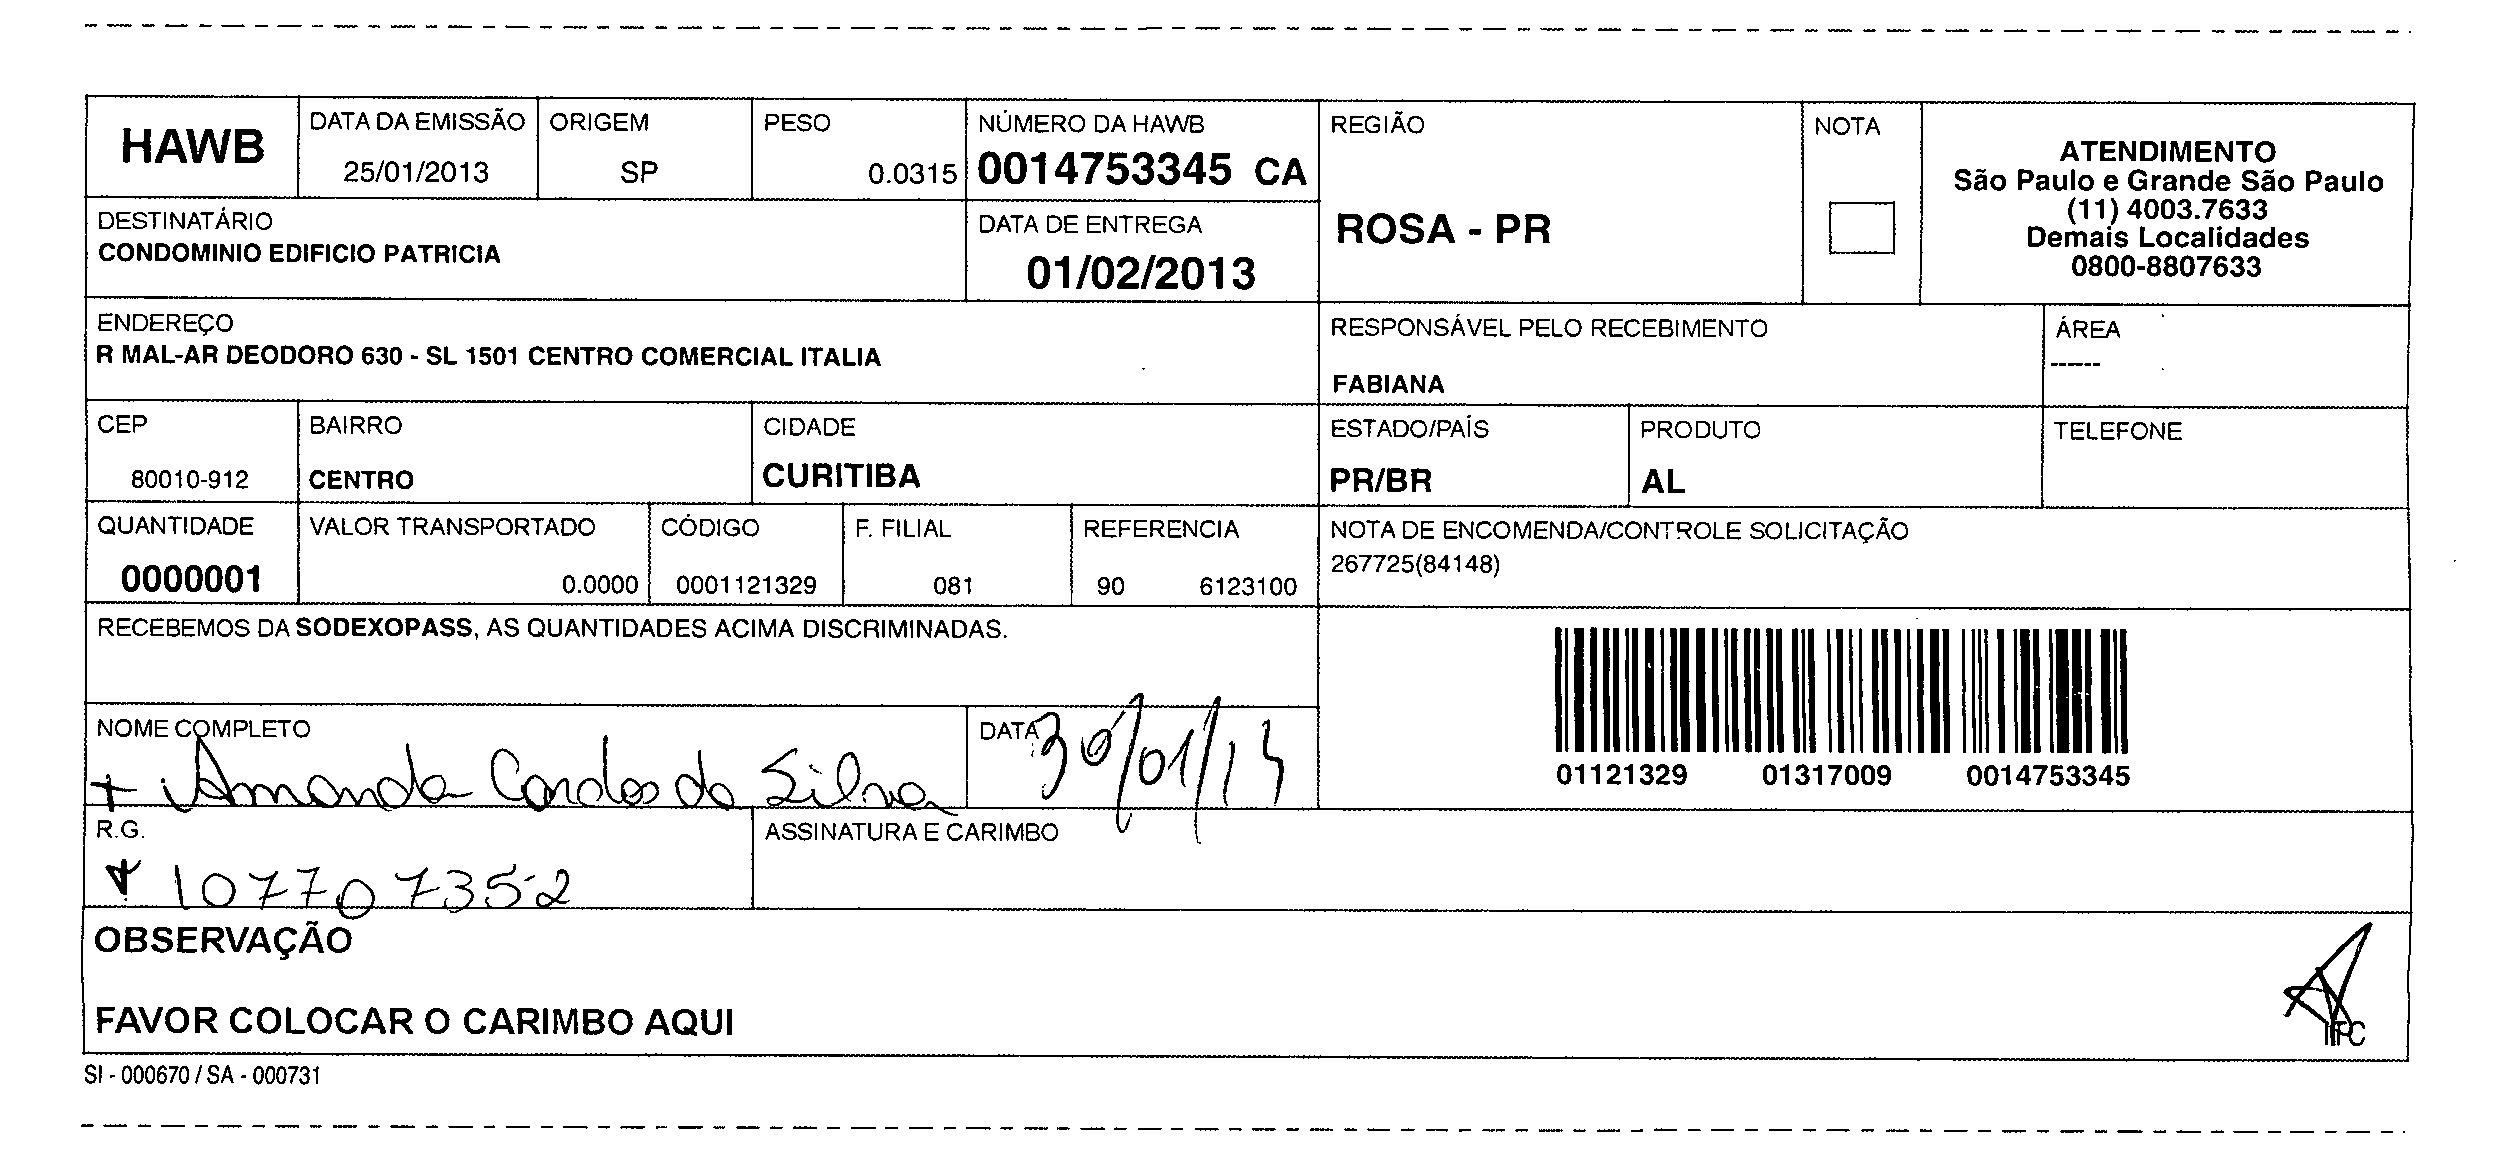 HAWB
DATA DA EMISSÃO
25/01/2013
ORIGEM
SP
PESO
0.0315
NÚMERO DA HAWB
0014753345 CA
REGIÃO
ROSA - PR
NOTA
ATENDIMENTO
São Paulo e Grande São Paulo
(11) 4003.7633
Demais Localidades
0800-8807633
DESTINATÁRIO
CONDOMINIO EDIFICIO PATRICIA
DATA DE ENTREGA
01/02/2013
ENDEREÇO
R MAL-AR DEODORO 630 - SL 1501 CENTRO COMERCIAL ITALIA
RESPONSÁVEL PELO RECEBIMENTO
FABIANA
ÁREA
------
CEP
80010-912
BAIRRO
CENTRO
CIDADE
CURITIBA
ESTADO/PAÍS
PR/BR
PRODUTO
AL
TELEFONE
QUANTIDADE
0000001
VALOR TRANSPORTADO
0.0000
CÓDIGO
0001121329
F. FILIAL
081
REFERENCIA
90 6123100
NOTA DE ENCOMENDA/CONTROLE SOLICITAÇÃO
267725(84148)
RECEBEMOS DA SODEXOPASS, AS QUANTIDADES ACIMA DISCRIMINADAS.
01121329 01317009 0014753345
NOME COMPLETO
Amanda da Silva
DATA
30/01/13
R.G.
107707352
ASSINATURA E CARIMBO
OBSERVAÇÃO
FAVOR COLOCAR O CARIMBO AQUI
SI - 000670 / SA - 000731